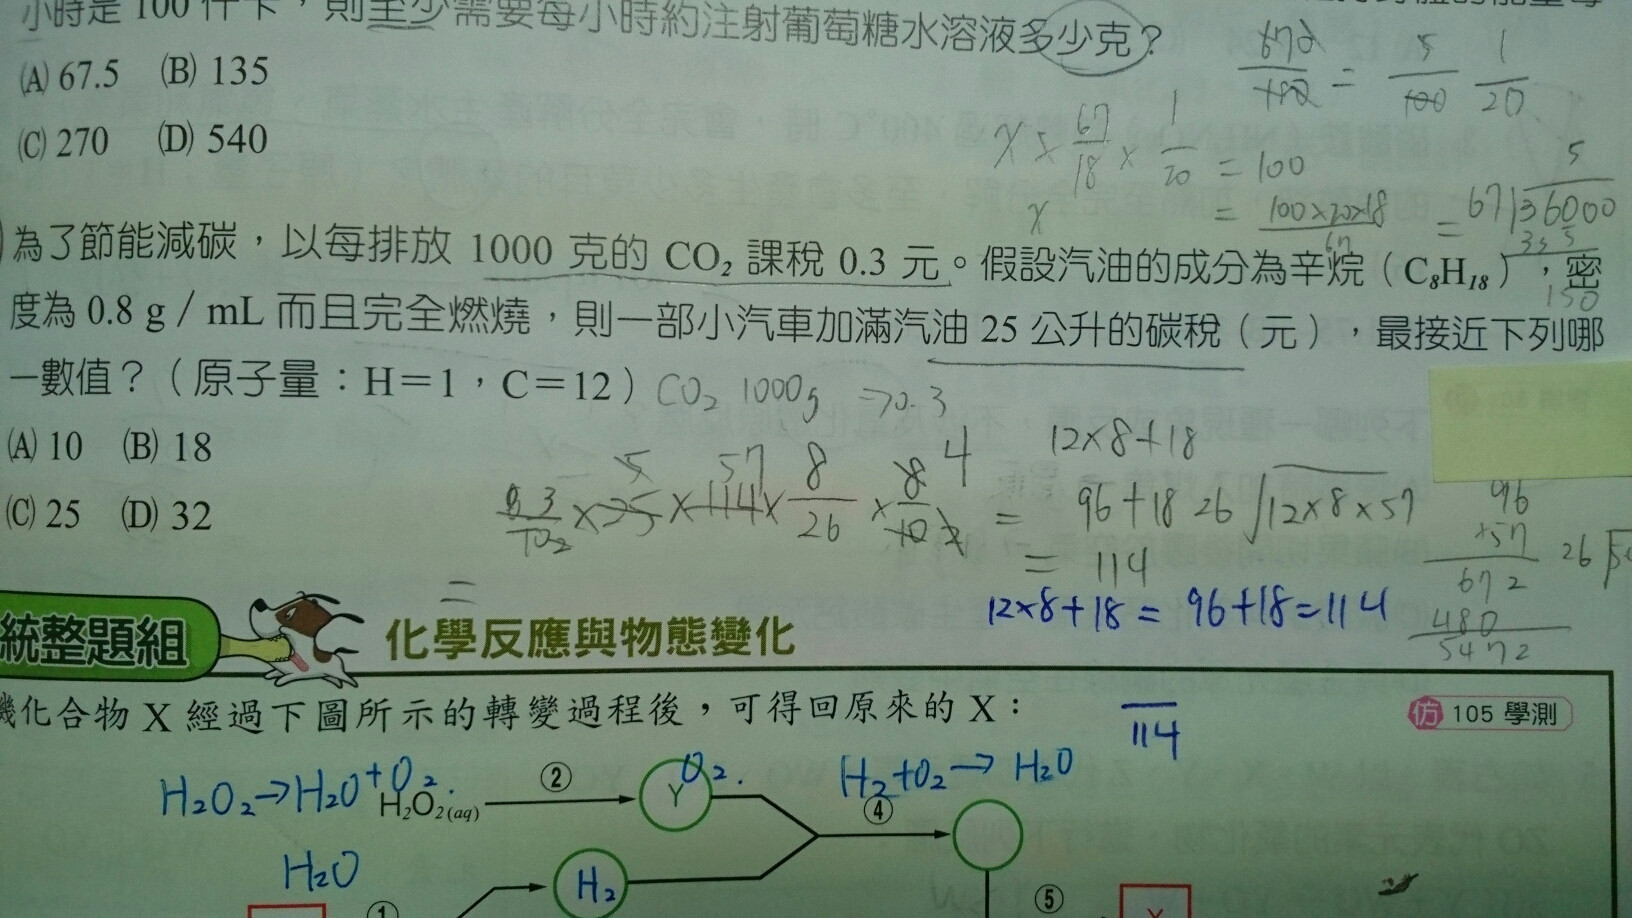 小時是 100 仟卡，則至少需要每小時約注射葡萄糖水溶液多少克？
(A) 67.5 (B) 135
(C) 270 (D) 540
x × 67/18 × 1/20 = 100
x = 100×20×18/67 = 67 36000
為了節能減碳，以每排放 1000 克的 CO₂ 課稅 0.3 元。假設汽油的成分為辛烷（C₈H₁₈），密
度為 0.8 g / mL 而且完全燃燒，則一部小汽車加滿汽油 25 公升的碳稅（元），最接近下列哪
一數值？（原子量：H＝1，C＝12）
CO₂ 1000g → 0.3
(A) 10 (B) 18
(C) 25 (D) 32
12×8+18
= 96+18
= 114
26 12×8×57
96
×57
672
480
5472
12×8+18 = 96+18=114
統整題組 化學反應與物態變化
機化合物 X 經過下圖所示的轉變過程後，可得回原來的 X：
仿 105 學測
114
H₂O₂→H₂O+O₂.
H₂O₂(aq) ② Y O₂.
H₂+O₂→ H₂O
④
H₂O
H₂
① ⑤
X